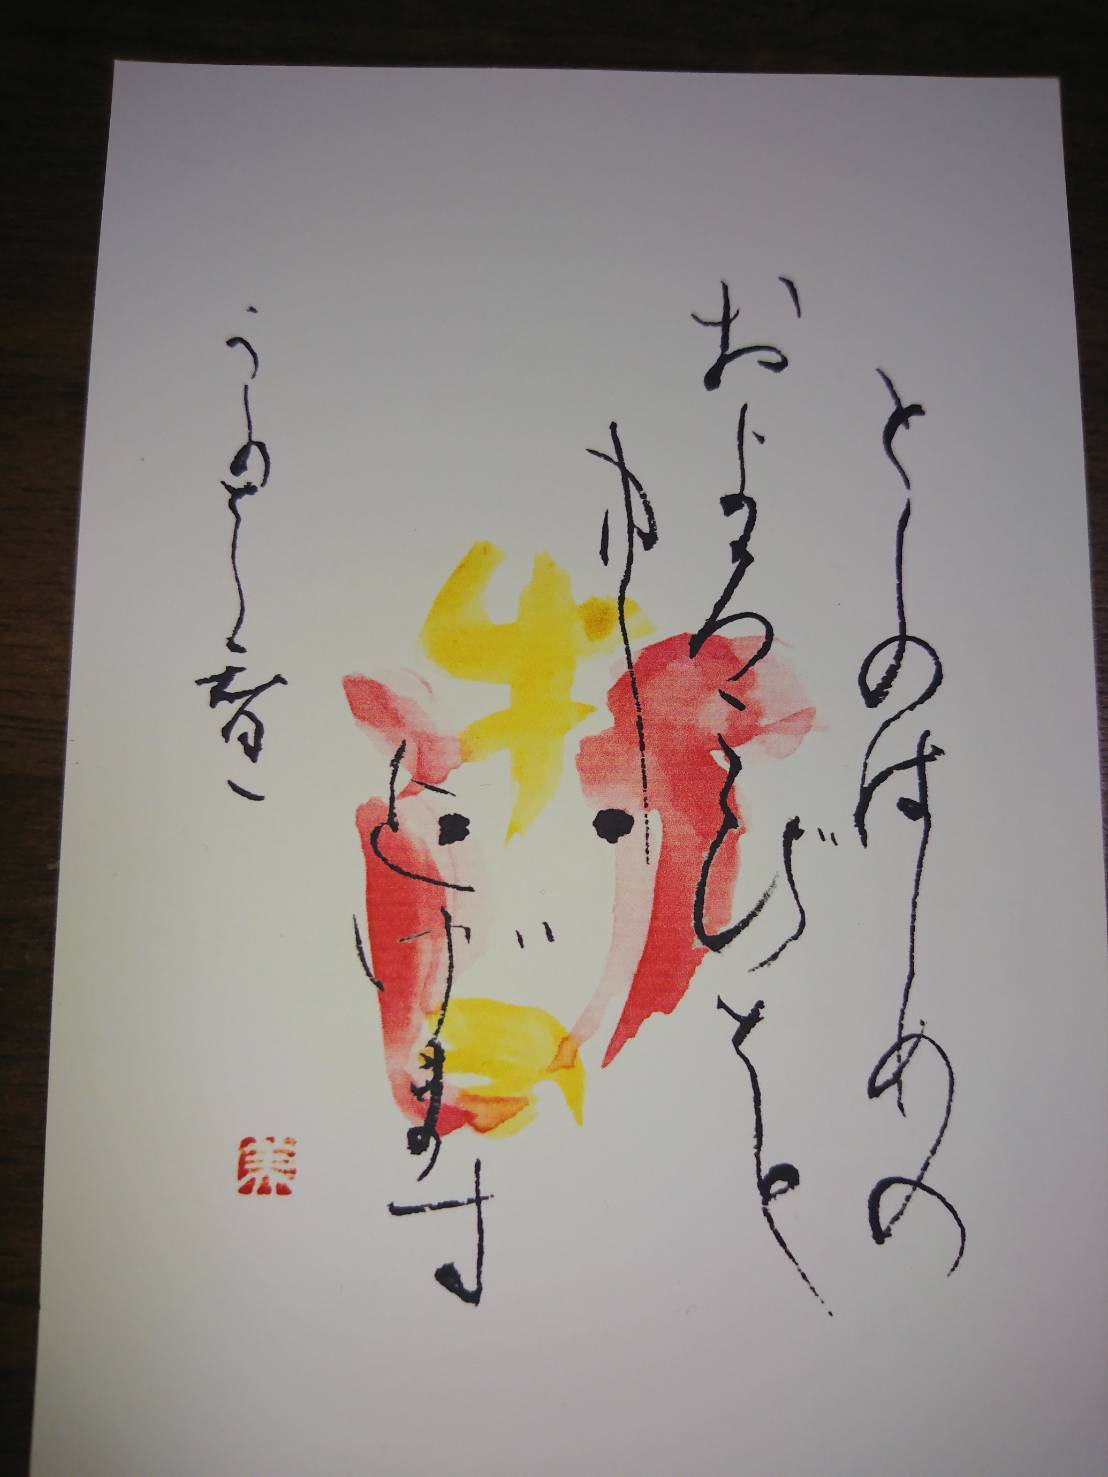 としのはしめの
およろこびを
申
上げます
うしのとし春
牛